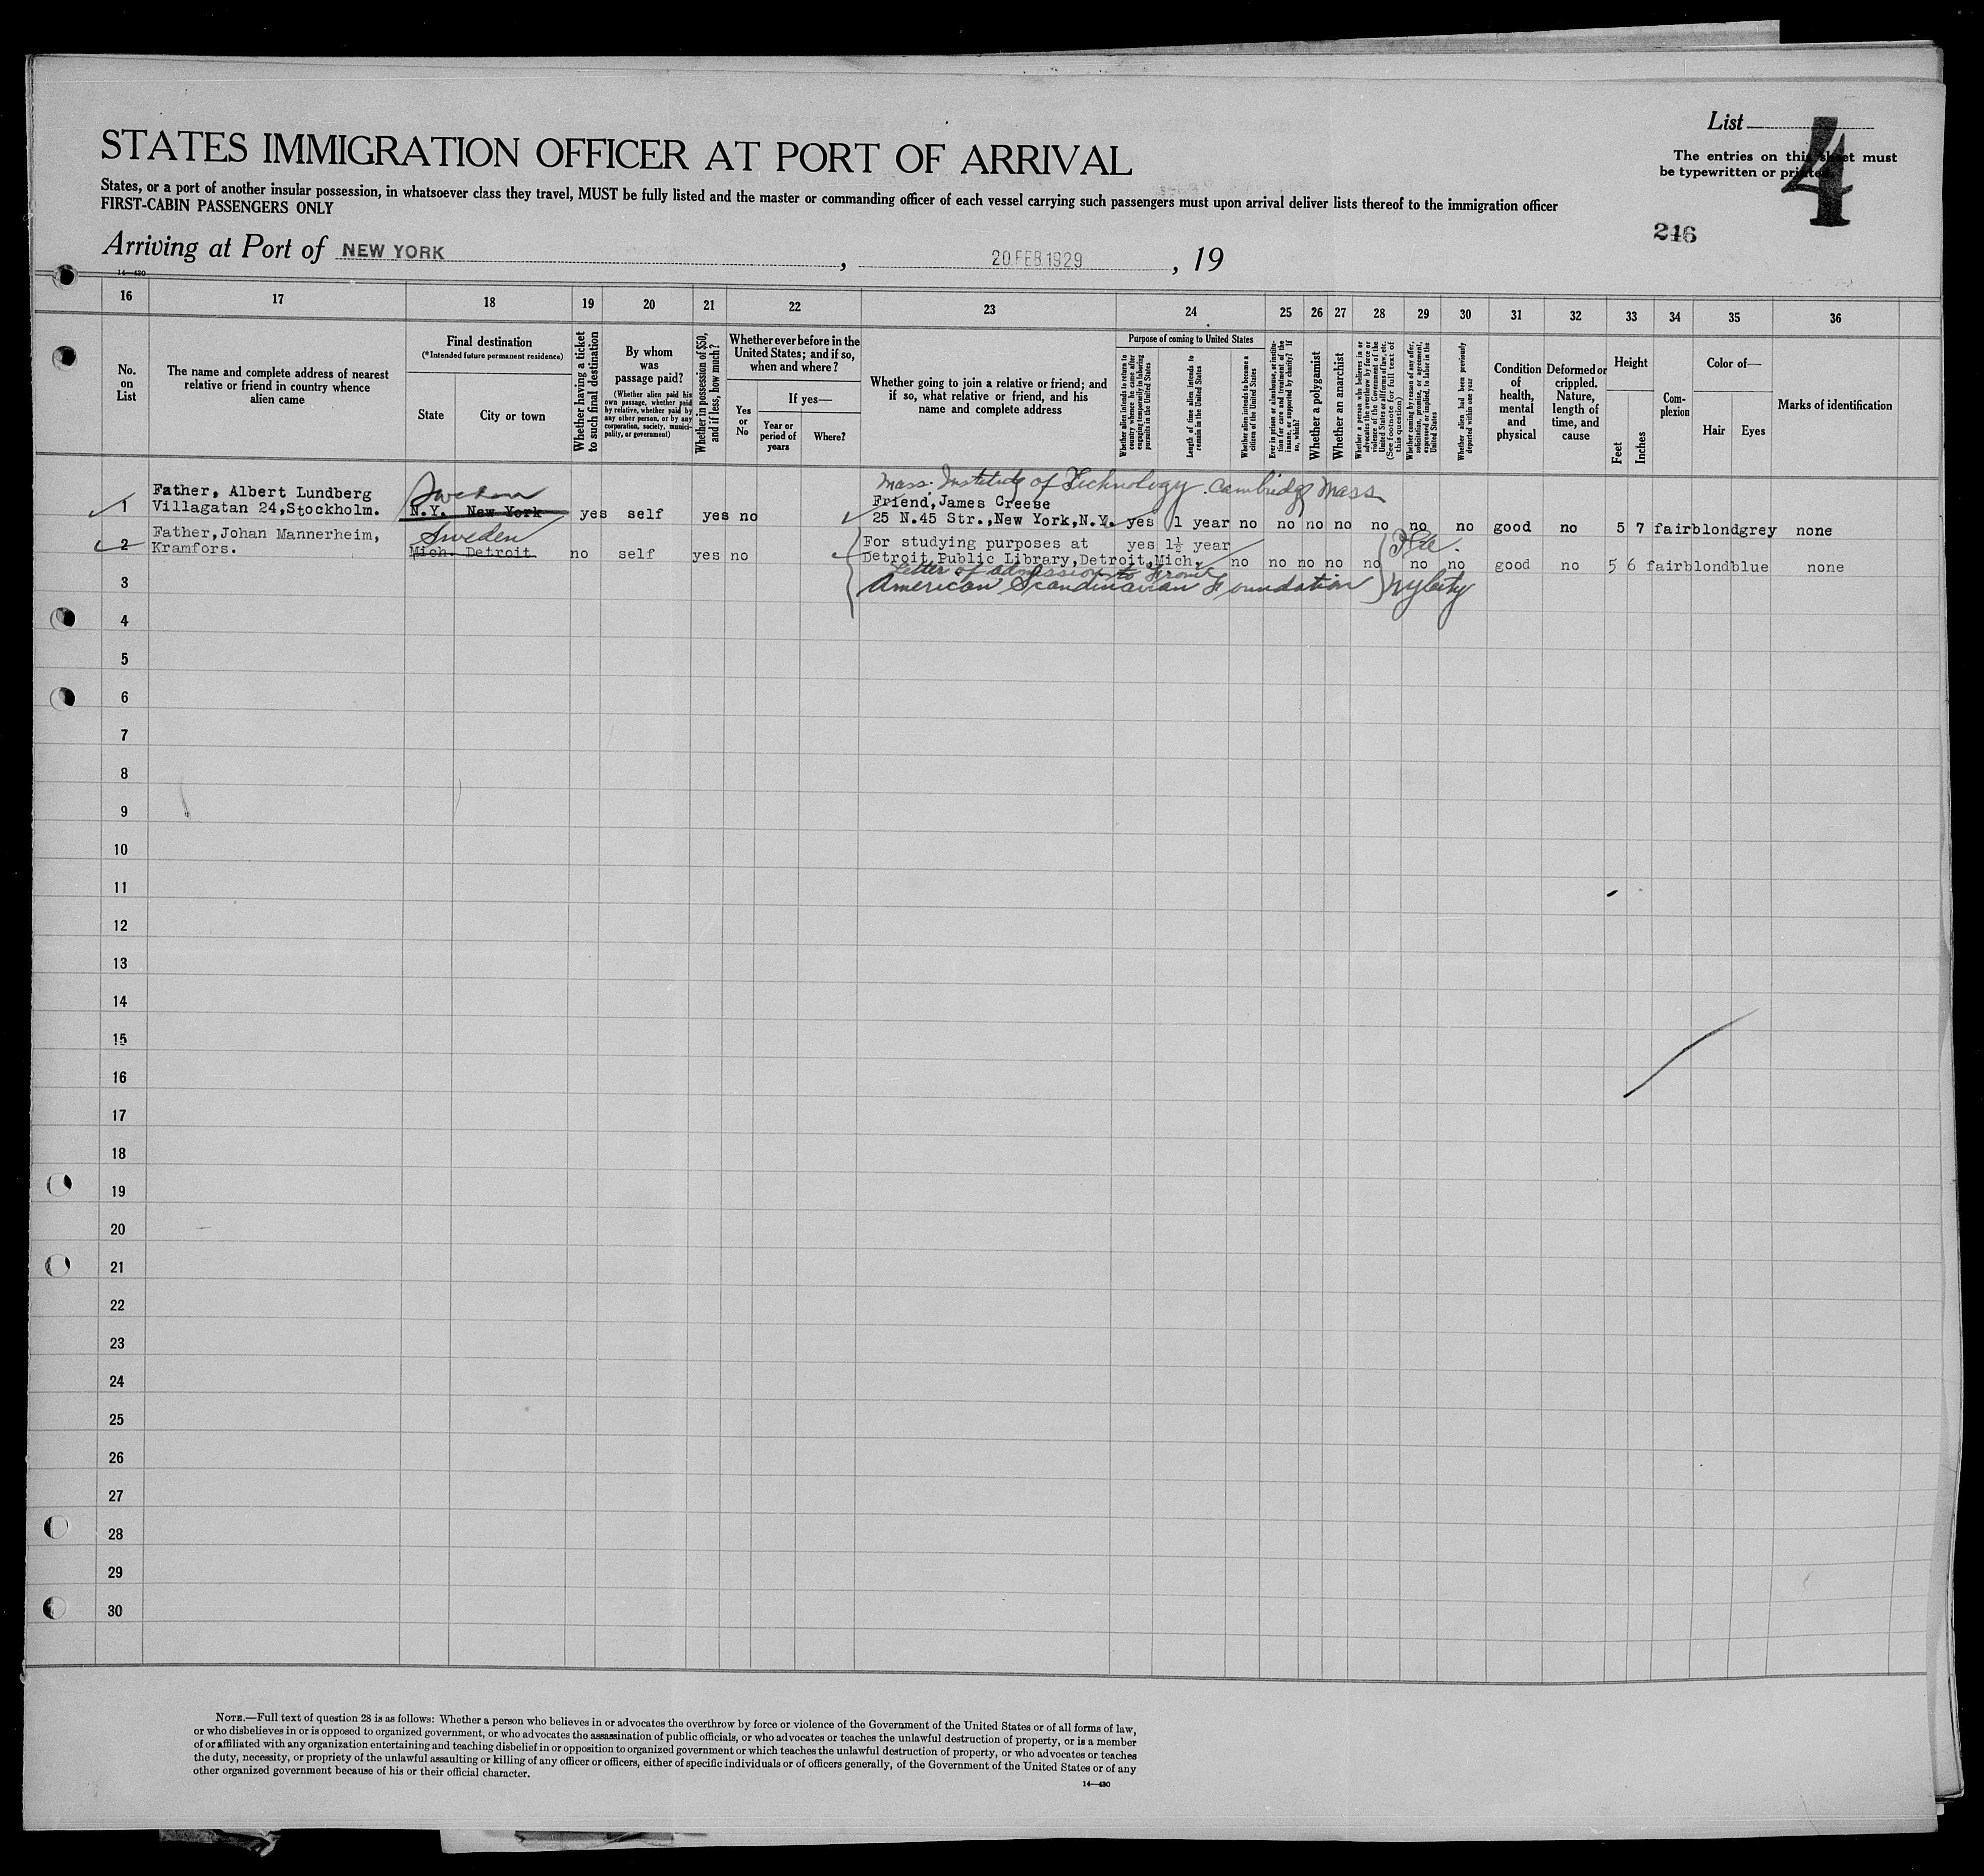 List
4
The entries on this sheet must
be typewritten or printed.
246
STATES IMMIGRATION OFFICER AT PORT OF ARRIVAL
States, or a port of another insular possession, in whatsoever class they travel, MUST be fully listed and the master or commanding officer of each vessel carrying such passengers must upon arrival deliver lists thereof to the immigration officer
FIRST-CABIN PASSENGERS ONLY
Arriving at Port of NEW YORK, 20 FEB. 1929, 19
14—430
16 17 18 19 20 21 22 23 24 25 26 27 28 29 30 31 32 33 34 35 36
No.
on
List
The name and complete address of nearest
relative or friend in country whence
alien came
Final destination
(*Intended future permanent residence)
State
City or town
Whether having a ticket
to such final destination
By whom
was
passage paid?
(Whether alien paid his
own passage, whether paid
by relative, whether paid by
any other person, or by any
corporation, society, munici-
pality, or government)
Whether in possession of $50,
and if less, how much?
Whether ever before in the
United States; and if so,
when and where?
Yes
or
No
If yes—
Year or
period of
years
Where?
Whether going to join a relative or friend; and
if so, what relative or friend, and his
name and complete address
Purpose of coming to United States
Whether alien intends to return to
country whence he came after
engaging temporarily in laboring
pursuits in the United States
Length of time alien intends to
remain in the United States
Whether alien intends to become a
citizen of the United States
Ever in prison or almshouse, or institu-
tion for care and treatment of the
insane, or supported by charity? If
so, which?
Whether a polygamist
Whether an anarchist
Whether a person who believes in or
advocates the overthrow by force or
violence of the Government of the
United States or all forms of law, etc.
(See footnote for full text of
this question)
Whether coming by reason of any offer,
solicitation, promise, or agreement,
expressed or implied, to labor in the
United States
Whether alien had been previously
deported within one year
Condition
of
health,
mental
and
physical
Deformed or
crippled.
Nature,
length of
time, and
cause
Height
Feet
Inches
Com-
plexion
Color of—
Hair
Eyes
Marks of identification
Sweden
Mass. Institute of Technology Cambridge Mass
1 Father, Albert Lundberg
Villagatan 24,Stockholm.
N.Y. New York yes self yes no
Friend,James Creese
25 N.45 Str.,New York,N.Y. yes 1 year no no no no no no no good no 5 7 fair blond grey none
Sweden
2 Father,Johan Mannerheim,
Kramfors.
Mich. Detroit no self yes no
For studying purposes at yes 1½ year
Detroit Public Library,Detroit,Mich. no no no no no no no good no 5 6 fair blond blue none
Letter of admission to from
American Scandinavian Foundation
NyCity
3
4
5
6
7
8
9
10
11
12
13
14
15
16
17
18
19
20
21
22
23
24
25
26
27
28
29
30
NOTE.—Full text of question 28 is as follows: Whether a person who believes in or advocates the overthrow by force or violence of the Government of the United States or of all forms of law,
or who disbelieves in or is opposed to organized government, or who advocates the assassination of public officials, or who advocates or teaches the unlawful destruction of property, or is a member
of or affiliated with any organization entertaining and teaching disbelief in or opposition to organized government or which teaches the unlawful destruction of property, or who advocates or teaches
the duty, necessity, or propriety of the unlawful assaulting or killing of any officer or officers, either of specific individuals or of officers generally, of the Government of the United States or of any
other organized government because of his or their official character.
14—430